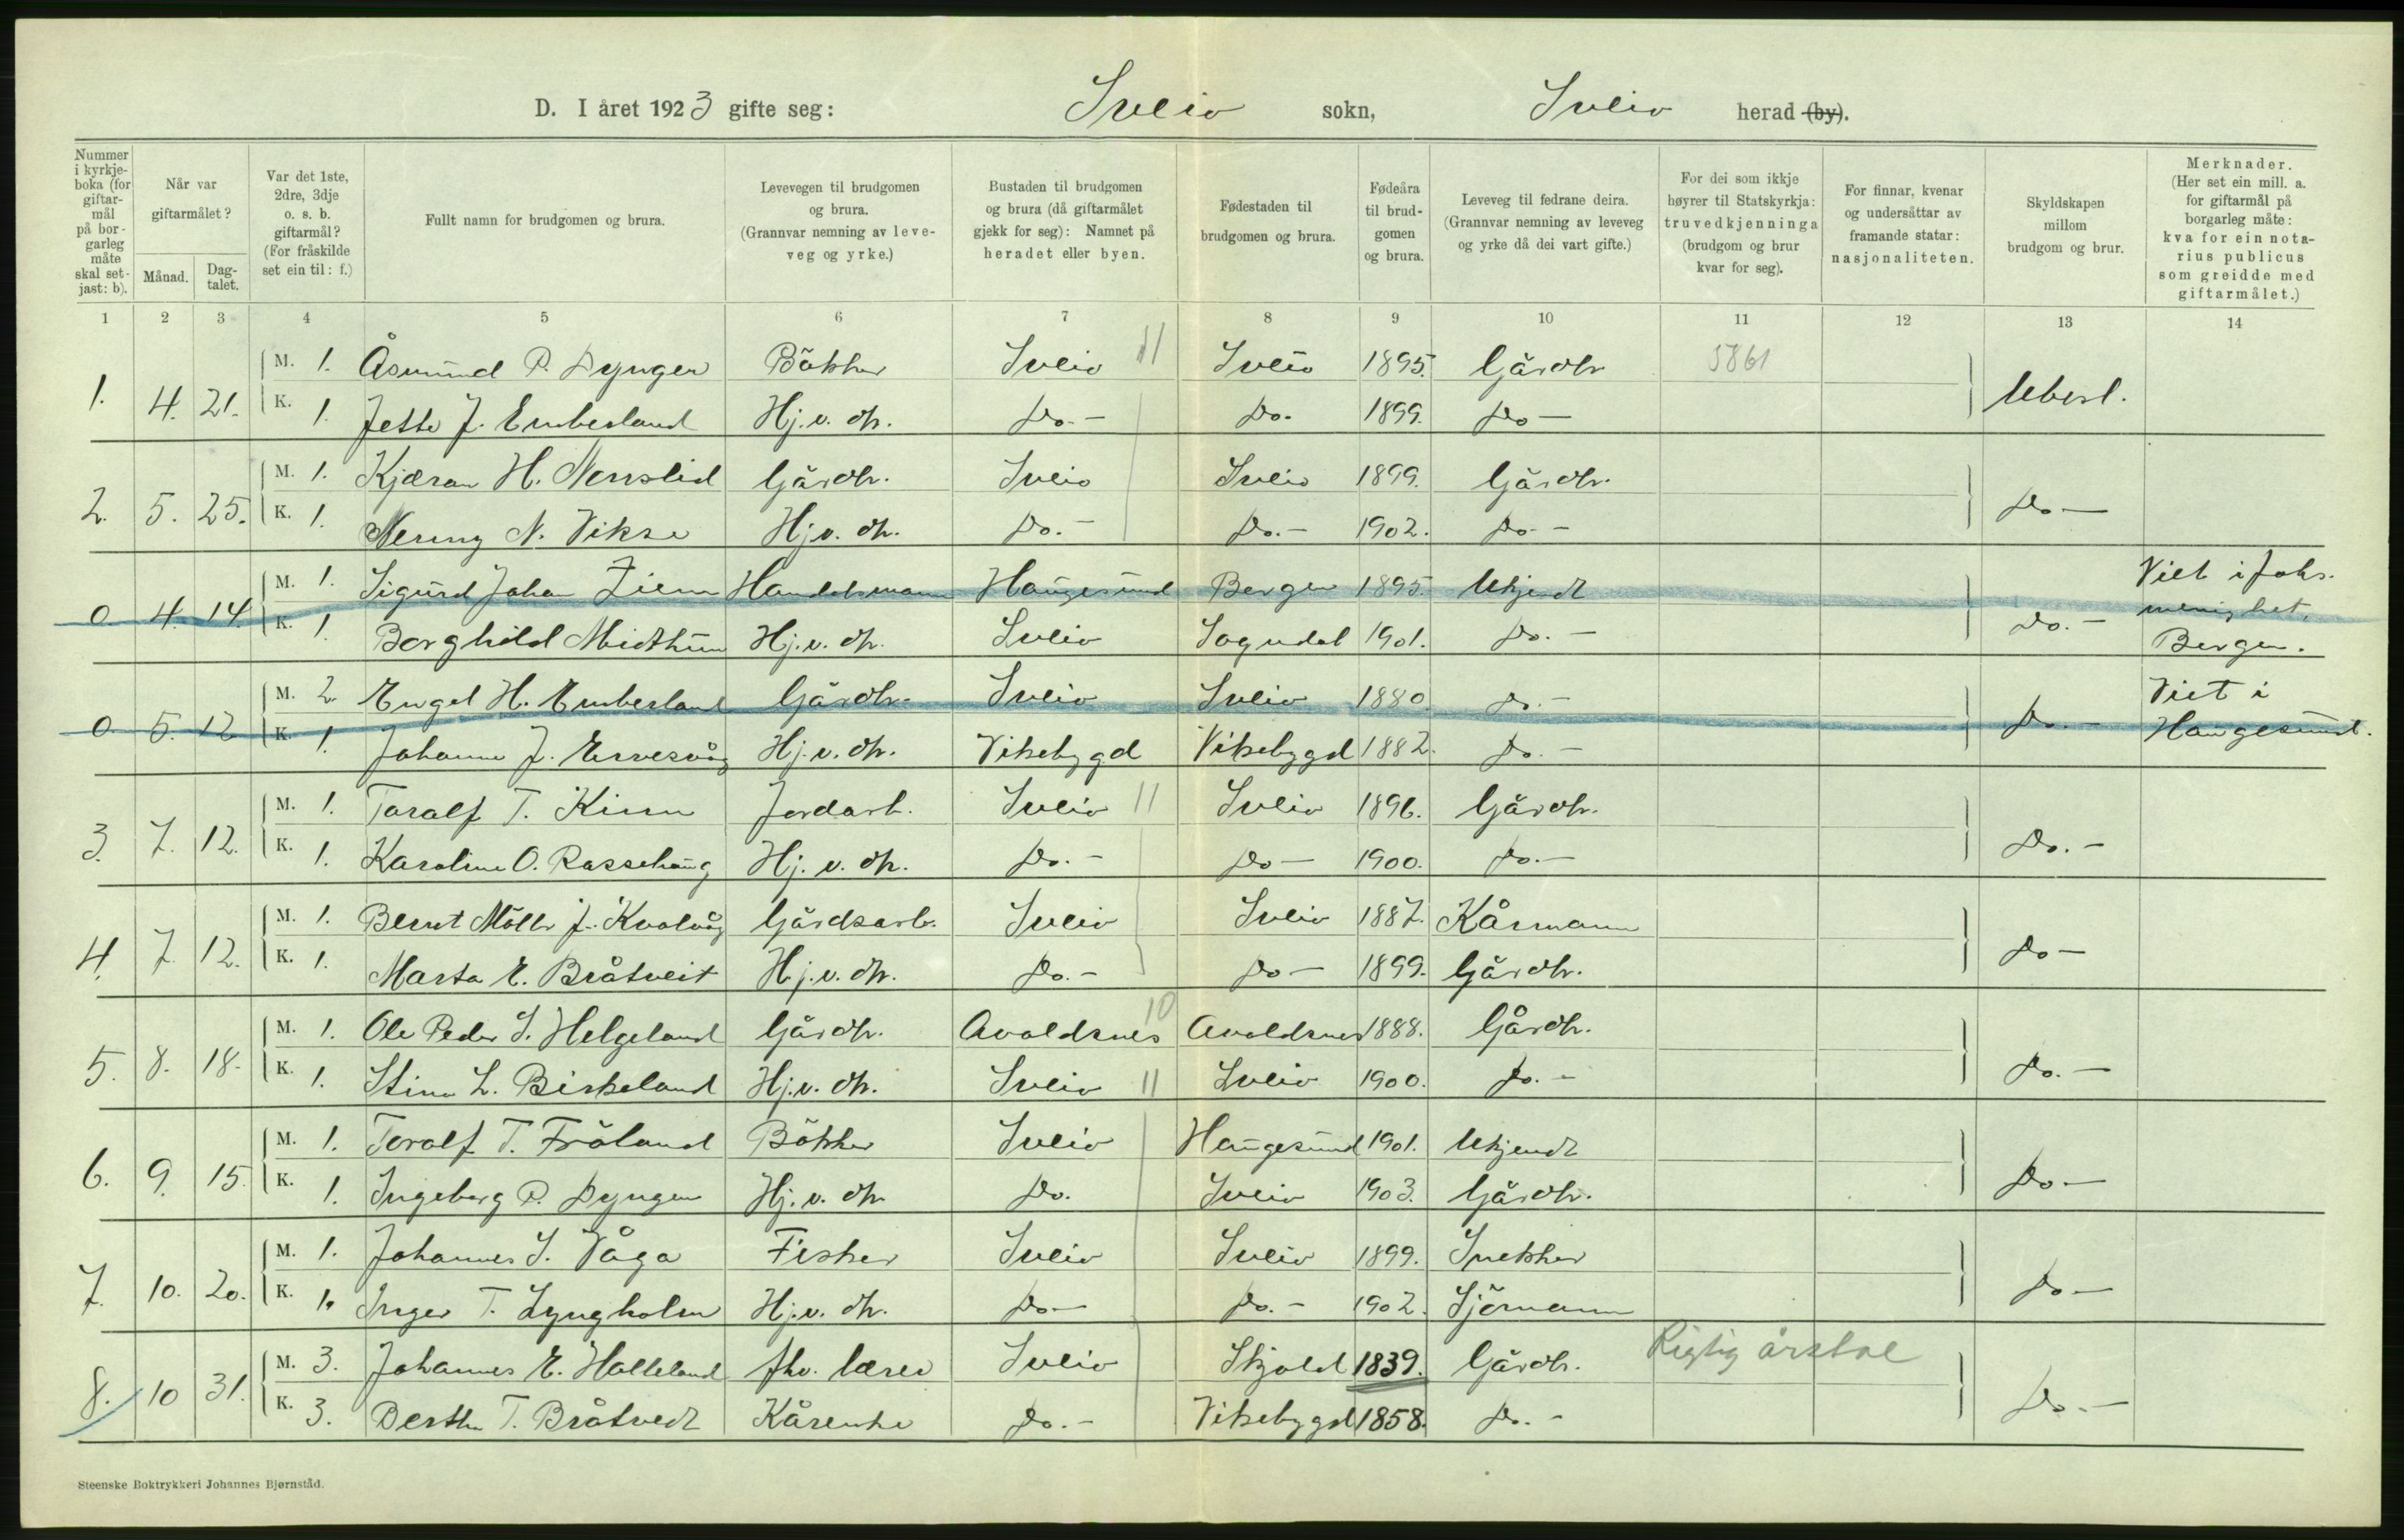 D. I året 1923 gifte seg: Sveio sokn, Sveio herad (by).
Nummer i kyrkje-boka (for giftar-mål på bor-garleg måte skal set-jast: b).
Når var giftarmålet?
Månad.
Dag-talet.
Var det 1ste, 2dre, 3dje o. s. b. giftarmål? (For fråskilde set ein til: f.)
Fullt namn for brudgomen og brura.
Levevegen til brudgomen og brura. (Grannvar nemning av leve-veg og yrke.)
Bustaden til brudgomen og brura (då giftarmålet gjekk for seg): Namnet på heradet eller byen.
Fødestaden til brudgomen og brura.
Fødeåra til brud-gomen og brura.
Leveveg til fedrane deira. (Grannvar nemning av leveveg og yrke då dei vart gifte.)
For dei som ikkje høyrer til Statskyrkja: truvedkjenninga (brudgom og brur kvar for seg).
For finnar, kvenar og undersåttar av framande statar: nasjonaliteten.
Skyldskapen millom brudgom og brur.
Merknader. (Her set ein mill. a. for giftarmål på borgarleg måte: kva for ein nota-rius publicus som greidde med giftarmålet.)
1 2 3 4 5 6 7 8 9 10 11 12 13 14
1. 4. 21. M. 1. Åsmund P. Dyngen Bökker Sveio 11 Sveio 1895. Gårdbr. 5861 Ubesl.
K. 1. Jette J. Emberland Hj. v. dh. Do. - Do. 1899. Do -
2. 5. 25. M. 1. Kjæran H. Norrslid Gårdbr. Sveio Sveio 1899. Gårdbr. Do -
K. 1. Nenny N. Vikse Hj. v. dh. Do. - Do. - 1902. Do. -
0. 4. 14. M. 1. Sigurd Johan Ziem Handelsmann Haugesund Bergen 1895. Ukjendt Do. - Viet i Johs. menighet, Bergen.
K. 1. Borghild Midthun Hj. v. dh. Sveio Sogndal 1901. Do. -
0. 5. 12 M. 2. Engel H. Emberland Gårdbr. Sveio Sveio 1880. Do. - Do. - Viet i Haugesund.
K. 1. Johanne J. Ervesvåg Hj. v. dh. Vikebygd Vikebygd 1882. Do. -
3. 7. 12. M. 1. Toralf T. Kinn Jordarb. Sveio 11 Sveio 1896. Gårdbr. Do. -
K. 1. Karoline O. Rassehaug Hj. v. dh. Do. - Do - 1900. Do. -
4. 7. 12. M. 1. Bernt Möller J. Kvalvåg Gårdsarb. Sveio Sveio 1887. Kårmann Do -
K. 1. Marta E. Bråtveit Hj. v. dh. Do. - Do - 1899. Gårdbr.
5. 8. 18. M. 1. Ole Peder S. Helgeland Gårdbr. Avaldsnes 10 Avaldsnes 1888. Gårdbr. Do. -
K. 1. Stina L. Birkeland Hj. v. dh. Sveio 11 Sveio 1900. Do. -
6. 9. 15. M. 1. Toralf T. Fröland Bökker Sveio Haugesund 1901. Ukjendt Do -
K. 1. Ingeborg P. Dyngen Hj. v. dh. Do. Sveio 1903. Gårdbr.
7. 10. 20. M. 1. Johannes S. Våga Fisker Sveio Sveio 1899. Snekker Do -
K. 1. Inger T. Lyngholm Hj. v. dh. Do - Do. - 1902. Sjömann
8. 10 31. M. 3. Johannes E. Halleland fhv. lærer Sveio Skjold 1839. Gårdbr. Rigtig årstal Do. -
K. 3. Berthe T. Bråtvedt Kårenke Do. - Vikebygd 1858. Do. -
Steenske Boktrykkeri Johannes Bjørnstad.